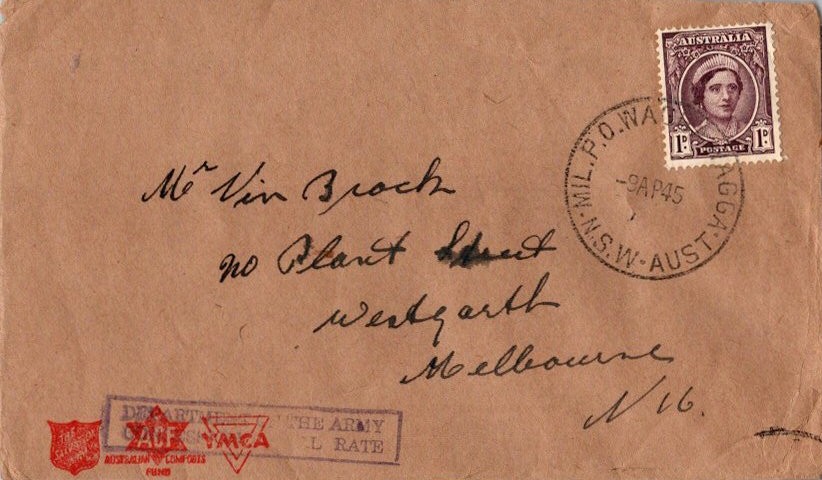 AUSTRALIA
1D POSTAGE 1D
MIL.P.O. WAG AGGA.
-9AP45
N.S.W-AUST.
Mr Vin Brock
Plant Street
Westgarth
Melbourne
N16.
DEPARTMENT THE ARMY
L RATE
THE SALVATION ARMY
ACF
AUSTRALIAN COMFORTS
FUND
YMCA